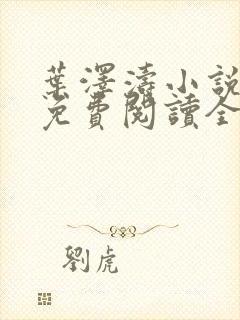 葉澤濤小說
免費閱讀全
劉虎